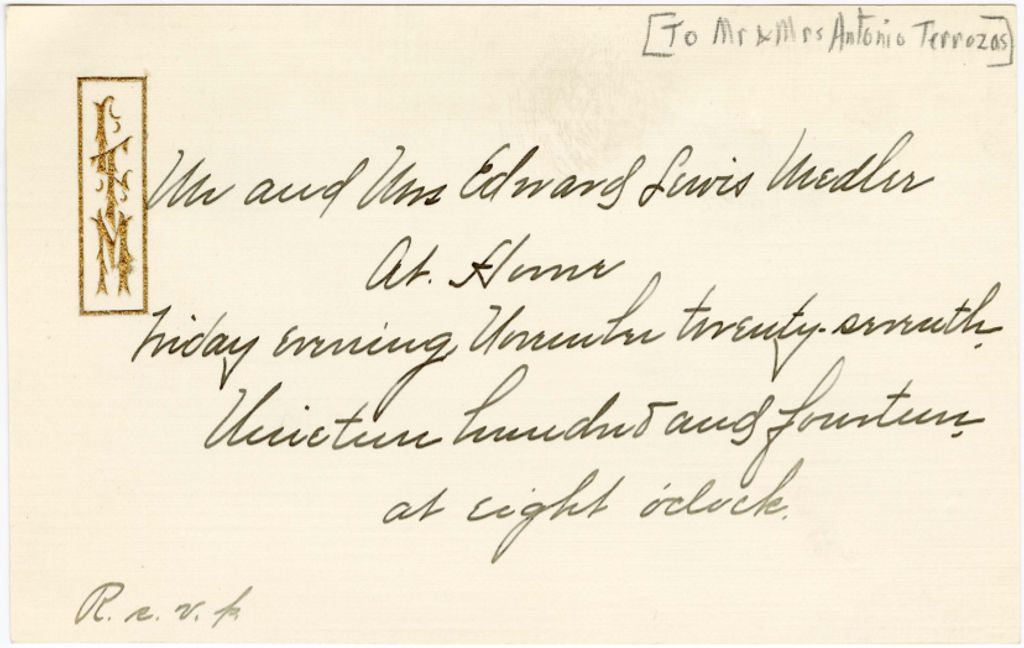 [To Mr & Mrs Antonio Terrazas]
Mr and Mrs Edward Lewis Medler
At. Home
Friday evening, November twenty-seventh,
Nineteen hundred and fourteen,
at eight o'clock.
R.s.v.p.